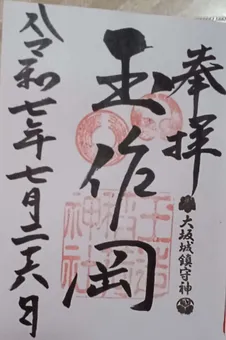 奉拝
大坂城鎮守神
玉作岡
玉造
稲荷
神社
令和七年七月二六日